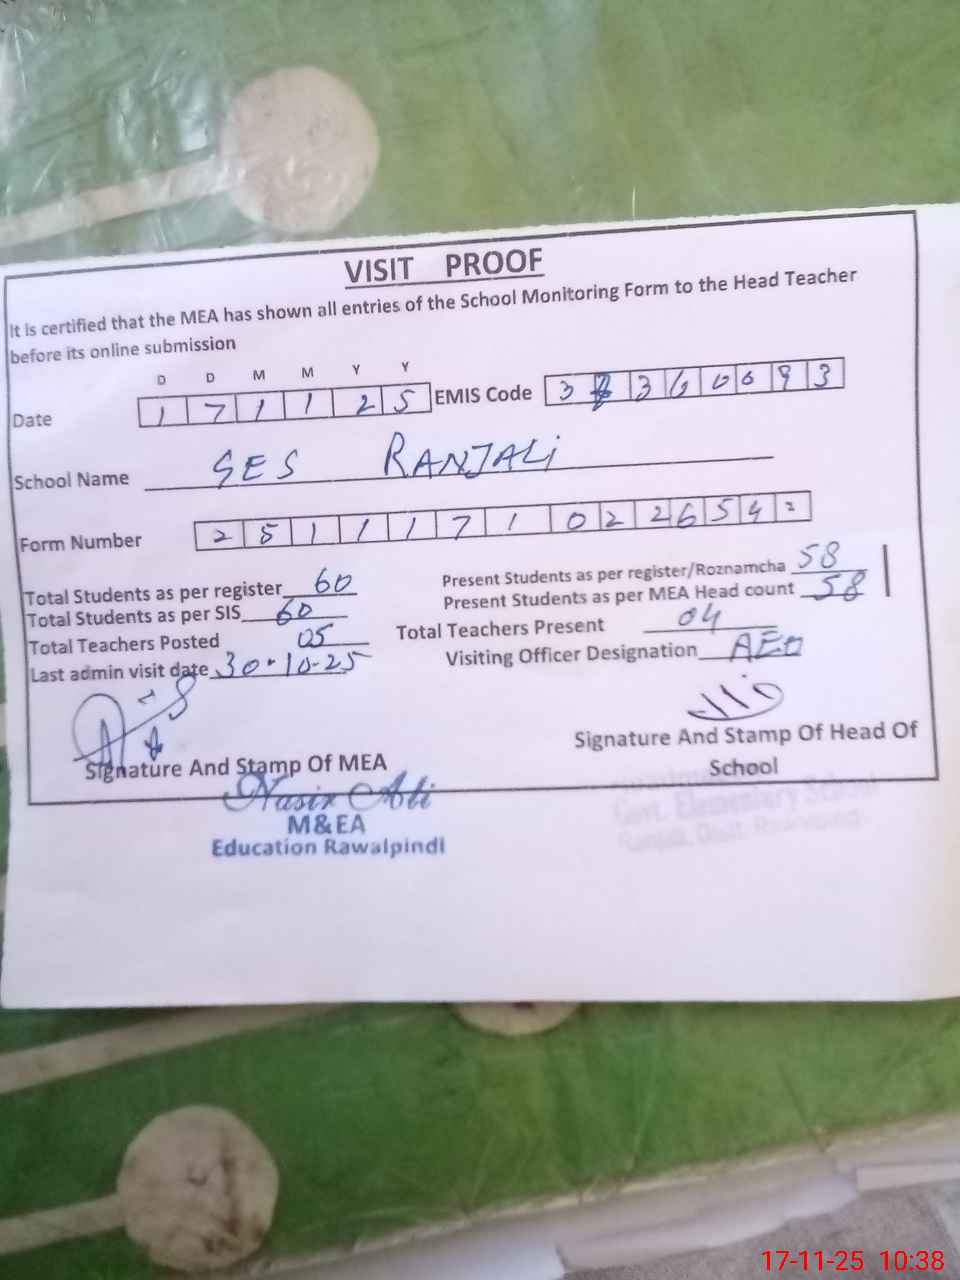 VISIT PROOF
It is certified that the MEA has shown all entries of the School Monitoring Form to the Head Teacher
before its online submission
D D M M Y Y
Date 1 7 1 1 2 5 EMIS Code 3 3 6 0 0 9 3
School Name GES RANJALi
Form Number 2 5 1 1 1 7 1 0 2 2 6 5 4 2
Total Students as per register 60 Present Students as per register/Roznamcha 58
Total Students as per SIS 60 Present Students as per MEA Head count 58
Total Teachers Posted 05 Total Teachers Present 04
Last admin visit date 30-10-25 Visiting Officer Designation AEO
Signature And Stamp Of MEA Signature And Stamp Of Head Of
School
Nasir Ali
M&EA
Education Rawalpindi
Govt. Elementary School
17-11-25 10:38